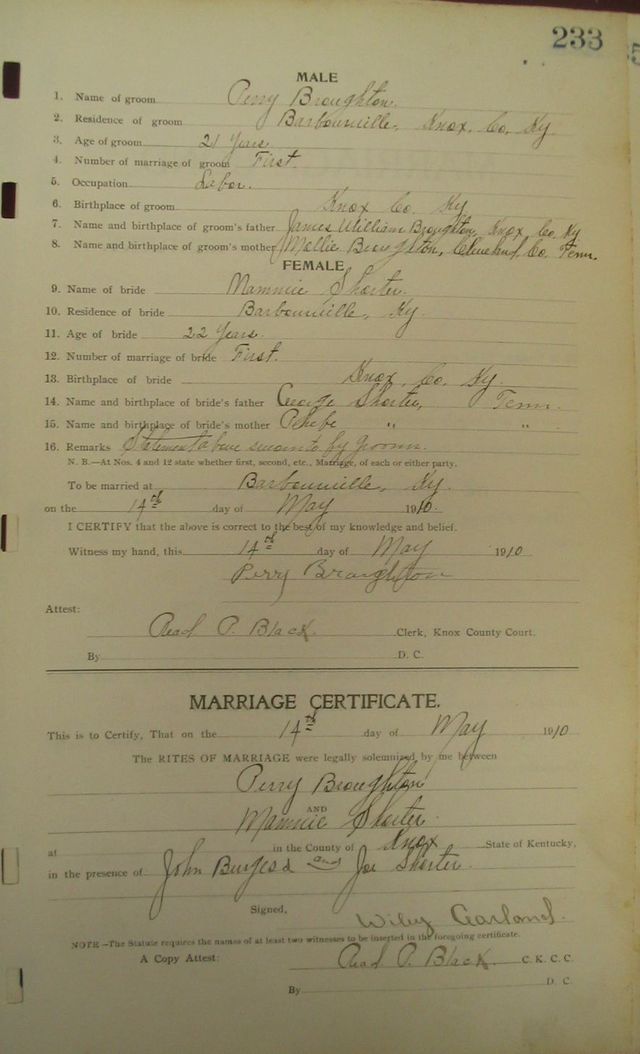 233
MALE
1. Name of groom Perry Broughton.
2. Residence of groom Barbourville, Knox, Co, Ky
3. Age of groom 21 Years.
4. Number of marriage of groom First.
5. Occupation Labor.
6. Birthplace of groom Knox Co. Ky
7. Name and birthplace of groom's father James William Broughton, Knox Co. Ky
8. Name and birthplace of groom's mother Mollie Broughton, Co. Tenn.
FEMALE
9. Name of bride Mammie Shorter.
10. Residence of bride Barbourville, Ky.
11. Age of bride 22 Years.
12. Number of marriage of bride First.
13. Birthplace of bride Knox, Co, Ky.
14. Name and birthplace of bride's father George Shorter, Tenn.
15. Name and birthplace of bride's mother Phebe " "
16. Remarks Statement above sworn to by groom.
N. B.—At Nos. 4 and 12 state whether first, second, etc., Marriage, of each or either party.
To be married at Barbourville, Ky.
on the 14th day of May 1910.
I CERTIFY that the above is correct to the best of my knowledge and belief.
Witness my hand, this 14th day of May 1910
Perry Broughton
Attest:
Read P. Black Clerk, Knox County Court.
By D. C.
MARRIAGE CERTIFICATE.
This is to Certify, That on the 14th day of May 1910
The RITES OF MARRIAGE were legally solemnized by me between
Perry Broughton
AND
Mammie Shorter.
at in the County of Knox State of Kentucky,
in the presence of John Burgess and Joe Shorter.
Signed, Wiley Garland.
NOTE—The Statute requires the names of at least two witnesses to be inserted in the foregoing certificate.
A Copy Attest: Read P. Black C. K. C. C.
By D. C.